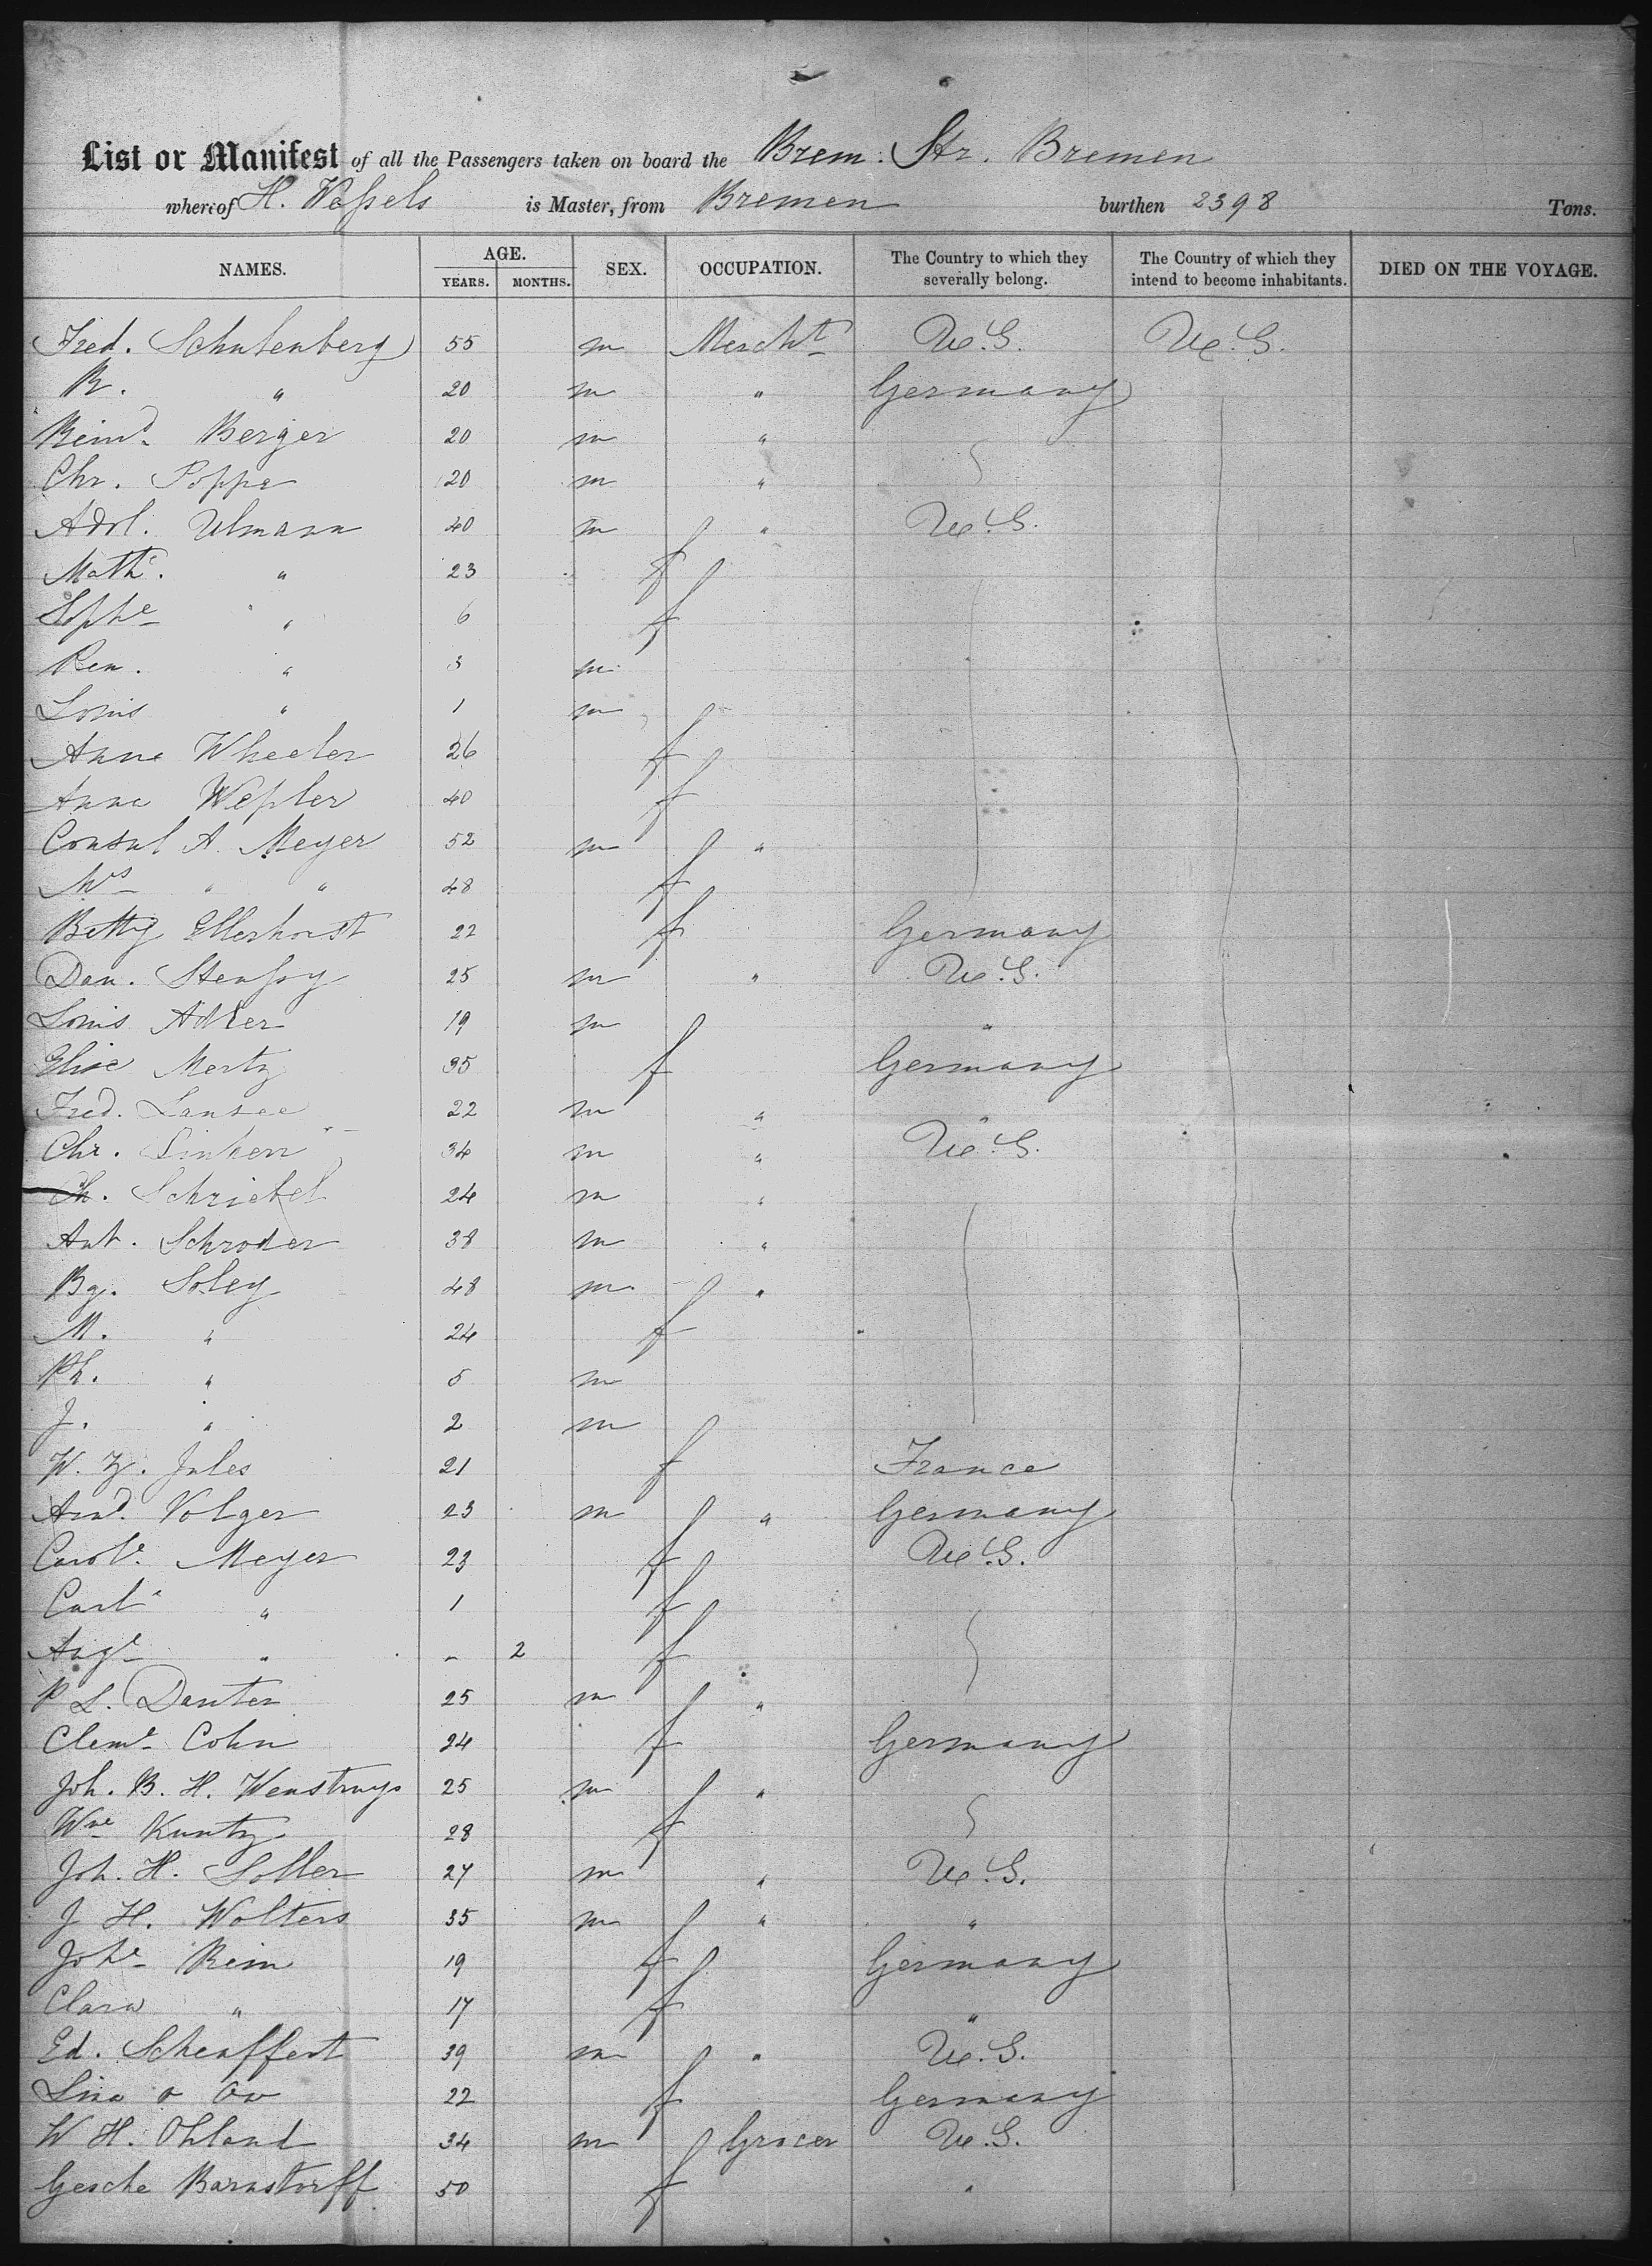 List or Manifest of all the Passengers taken on board the Brem. Str. Bremen
whereof H. Weſsels is Master, from Bremen burthen 2398 Tons.
NAMES. AGE. YEARS. MONTHS. SEX. OCCUPATION. The Country to which they severally belong. The Country of which they intend to become inhabitants. DIED ON THE VOYAGE.
Fred. Schulenberg 55 m Mercht U.S. U.S.
R. " 20 m " Germany
Reind. Berger 20 m "
Chr. Poppe 20 m "
Adol. Ulmann 40 m " U.S.
Mathe. " 23 f
Sophe " 6 f
Ren. " 3 m
Louis " 1 m
Anne Wheeler 26 f
Anna Weſsler 40 f
Consul A. Meyer 52 m "
Mrs " " 48 f
Betty Ellerhorst 22 f Germany
Dan. 25 m " U.S.
Louis Adler 19 m "
Elise Mertz 35 f Germany
Fred. Lansee 22 m " "
Chr. Sinken 34 m " U.S.
Ch. Schriebel 24 m "
Ant. Schroder 38 m "
Bg. Soley 48 m "
M. " 24 f
Ph. " 5 m
J. " 2 m
W. Z. Jules 21 f France
Arnd. Volger 23 m " Germany
Carole. Meyer 23 f U.S.
Carl " 1 f
Auge " - 2 f
P L. Danter 25 m "
Cleme Cohn 24 f Germany
Joh. B. H. 25 m "
Wne Kuntz 28 f
Joh. H. Soller 27 m " U.S.
J H. Wolters 35 m " "
Johe Rein 19 f Germany
Clara " 17 f "
Ed. Scheuffert 39 m " U.S.
Lina 22 f Germany
W H. Ohland 34 m Grocer U.S.
Gesche Barnstorff 50 f "